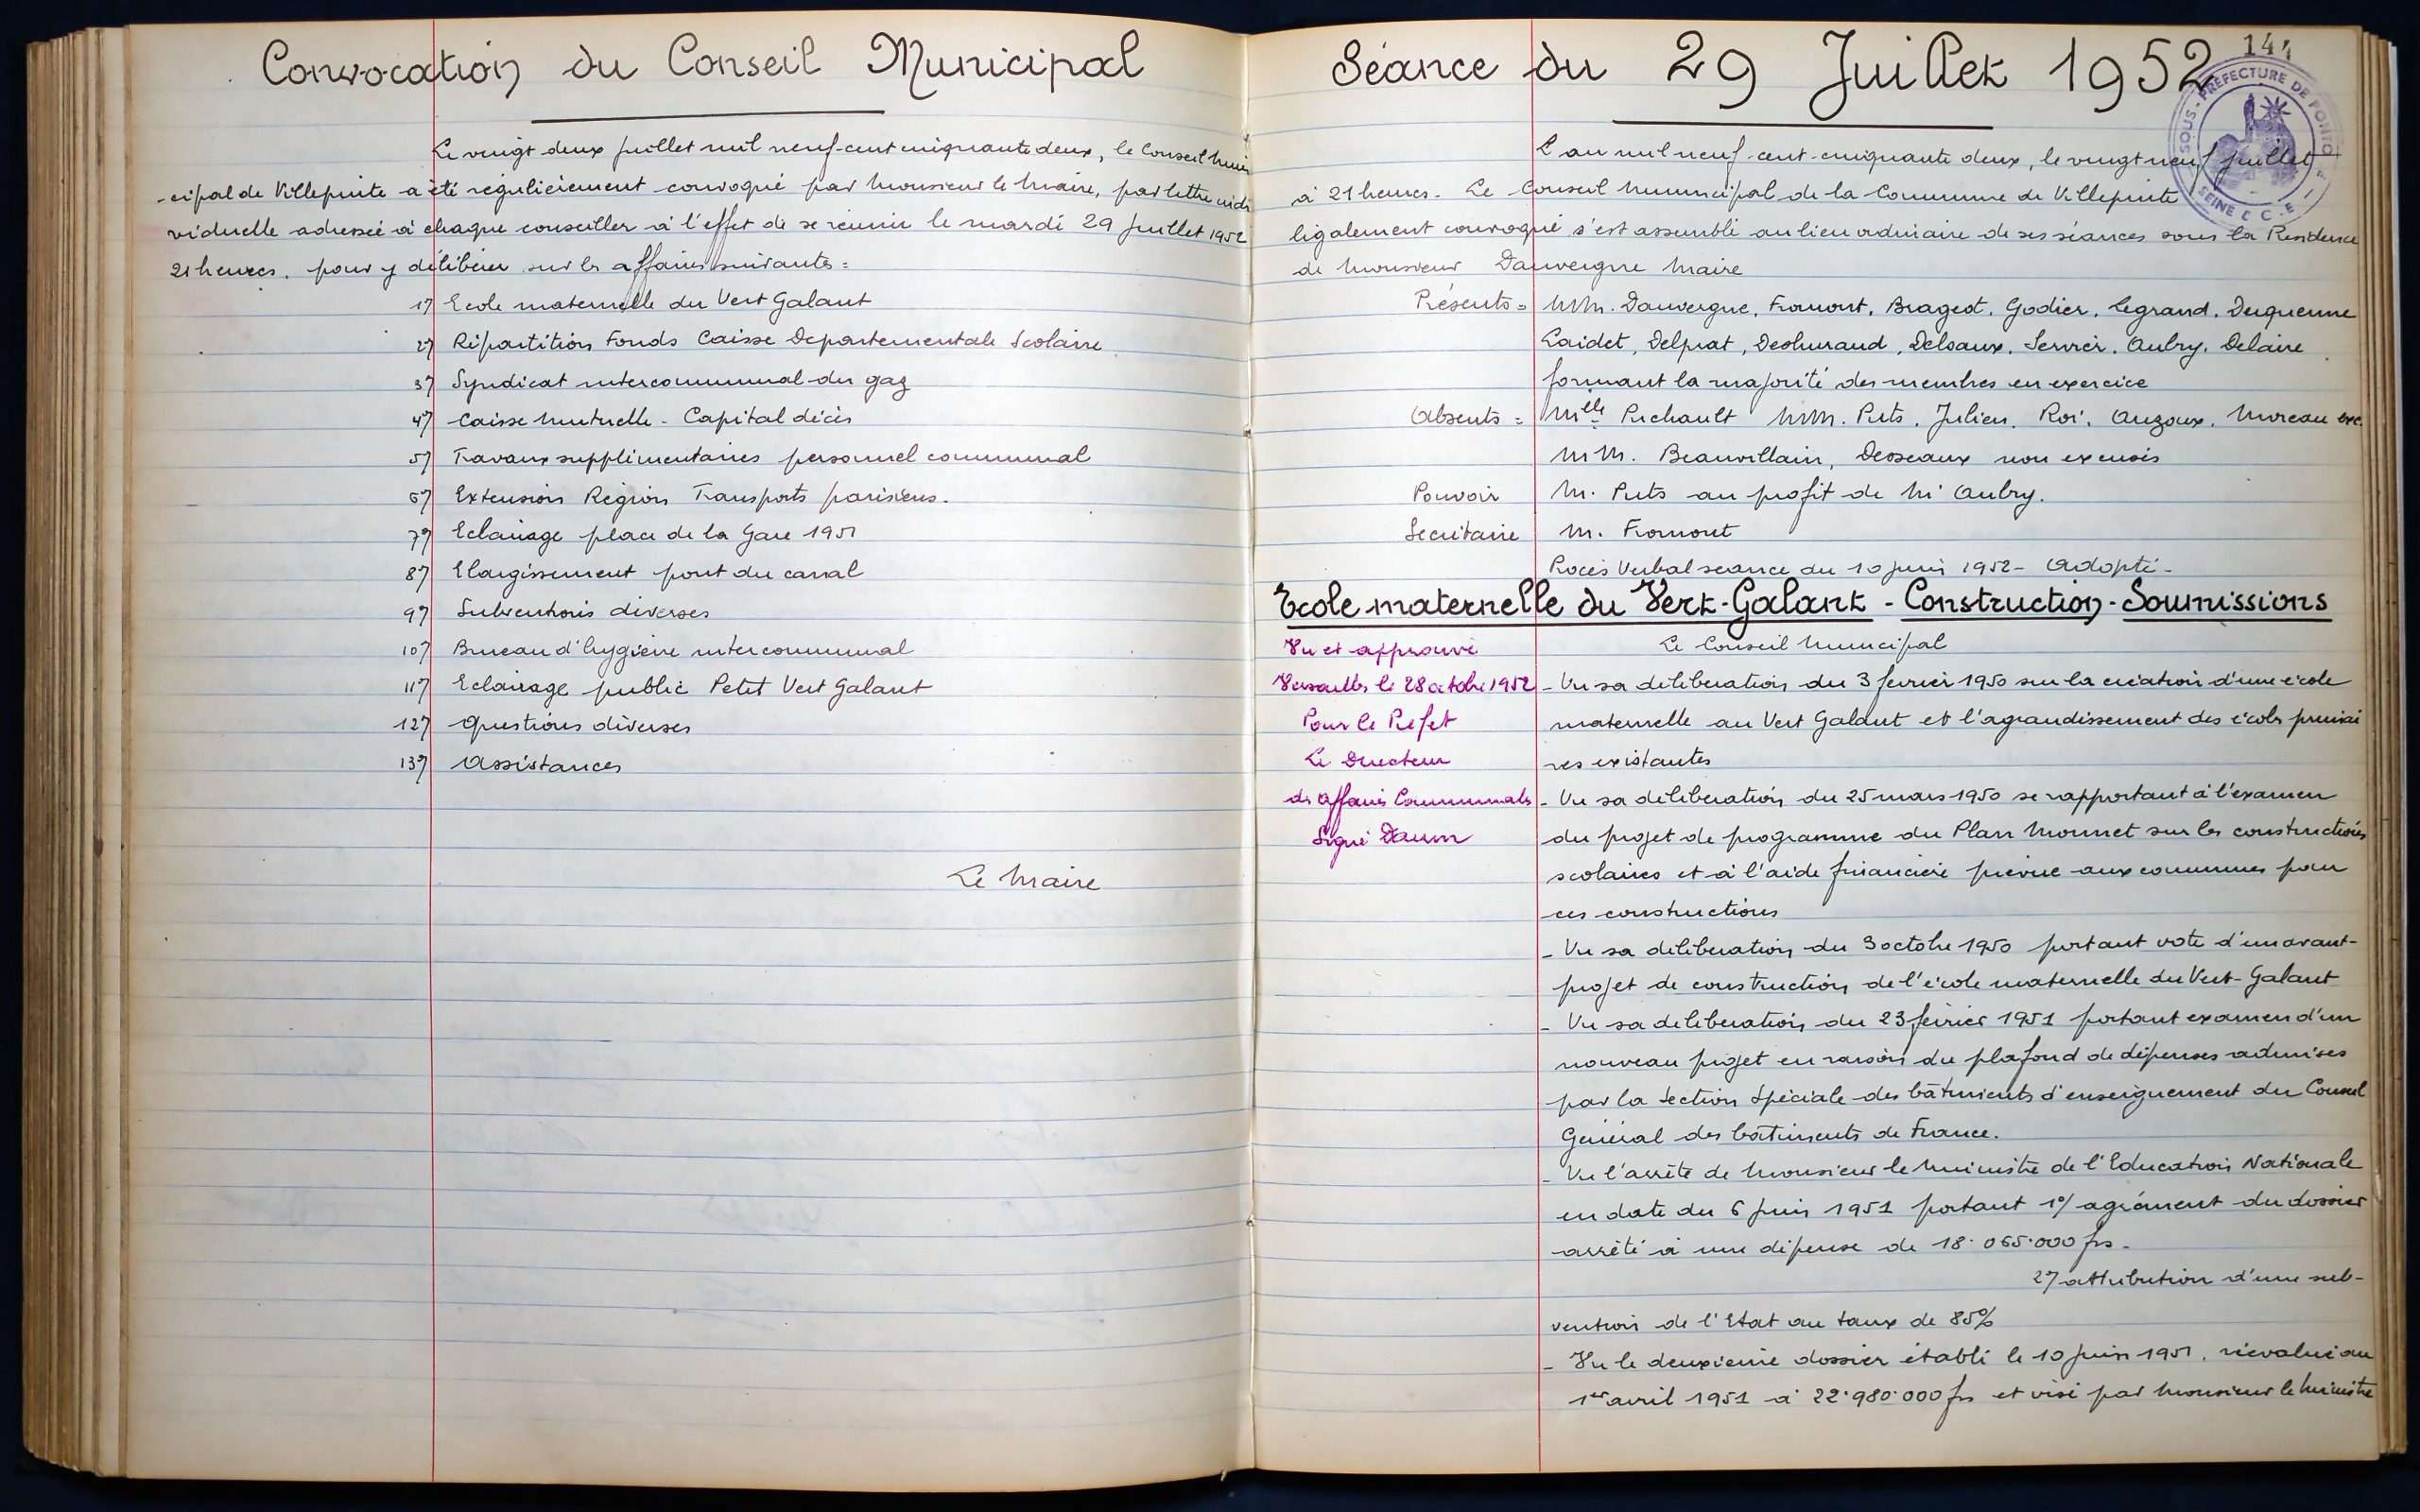 Convocation du Conseil Municipal
Le vingt deux juillet mil neuf-cent cinquante deux, le Conseil Muni
-cipal de Villepinte a été régulièrement convoqué par Monsieur le Maire, par lettre indi
viduelle adressée à chaque conseiller à l'effet de se réunir le mardi 29 Juillet 1952
21 heures, pour y délibérer sur les affaires suivantes =
1°/ Ecole maternelle du Vert Galant
2°/ Répartition Fonds Caisse Departementale Scolaire
3°/ Syndicat intercommunal du gaz
4°/ Caisse Mutuelle - Capital décès
5°/ Travaux supplémentaires personnel communal
6°/ Extension Région Transports parisiens.
7°/ Eclairage place de la Gare 1951
8°/ Elargissement pont du canal
9°/ Subventions diverses
10°/ Bureau d'hygiène intercommunal
11°/ Eclairage public Petit Vert Galant
12°/ Questions diverses
13°/ Assistances
Le Maire
144
Séance du 29 Juillet 1952
SOUS-PREFECTURE DE PONTO
SEINE
L'an mil neuf-cent-cinquante deux, le vingt neuf juillet
à 21 heures. Le Conseil Municipal de la Commune de Villepinte
légalement convoqué s'est assemblé au lieu ordinaire de ses séances sous la Présidence
de Monsieur Dauvergne Maire
Présents = MM. Dauvergne, Fromont, Brageot, Godier, Legrand, Duquenne
Laidet, Delprat, Deshuraud, Delsaux, Servier, Aubry, Delaire
formant la majorité des membres en exercice
Absents = Mlle Pichault MM. Puts, Julien, Roi, Auzoux, Moreau exc.
MM. Beauvillain, Desseaux non excusés
Pouvoir M. Puts au profit de M. Aubry.
Secrétaire M. Fromont
Procès Verbal séance du 10 juin 1952 - Adopté -
Ecole maternelle du Vert-Galant - Construction - Soumissions
Vu et approuvé
Versailles le 28 octobre 1952
Pour le Préfet
Le Directeur
des Affaires Communales
Signé Daum
Le Conseil Municipal
- Vu sa délibération du 3 février 1950 sur la création d'une école
maternelle au Vert Galant et l'agrandissement des écoles primai
res existantes
- Vu sa délibération du 25 mars 1950 se rapportant à l'examen
du projet de programme du Plan Monnet sur les constructions
scolaires et à l'aide financière prévue aux communes pour
ces constructions
- Vu sa délibération du 3 octobre 1950 portant vote d'un avant-
projet de construction de l'école maternelle du Vert-Galant
- Vu sa délibération du 23 février 1951 portant examen d'un
nouveau projet en raison du plafond de dépenses admises
par la Section Spéciale des bâtiments d'enseignement du Conseil
Général des bâtiments de France.
- Vu l'arrêté de Monsieur le Ministre de l'Education Nationale
en date du 6 juin 1951 portant 1°/ agrément du dossier
arrêté à une dépense de 18.065.000 frs -
2°/ attribution d'une sub-
vention de l'Etat au taux de 85%
- Vu le deuxième dossier établi le 10 juin 1951, réévalué au
1er avril 1951 à 22.980.000 frs et visé par Monsieur le Ministre